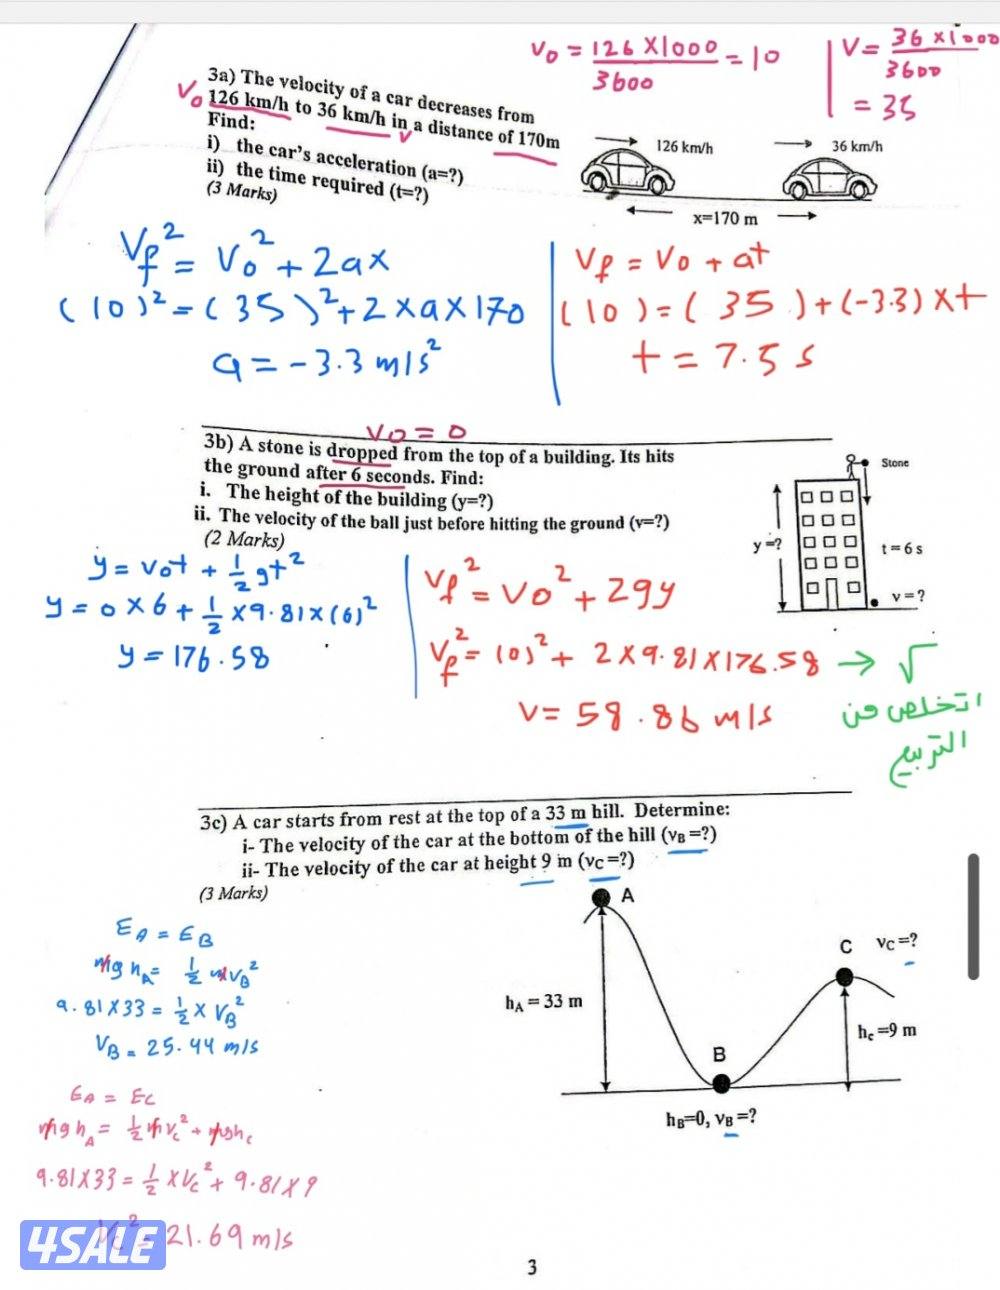 V₀ = 126 X1000 / 3600 = 10
V = 36 x1000 / 3600
= 35
3a) The velocity of a car decreases from
V₀ 126 km/h to 36 km/h in a distance of 170m
v
Find:
i) the car's acceleration (a=?)
ii) the time required (t=?)
(3 Marks)
126 km/h
36 km/h
x=170 m
Vf² = V₀² + 2ax
(10)² = (35)² + 2 x a x 170
a = -3.3 m/s²
Vf = V₀ + at
(10) = (35) + (-3.3) x t
t = 7.5 s
V₀ = 0
3b) A stone is dropped from the top of a building. Its hits
the ground after 6 seconds. Find:
i. The height of the building (y=?)
ii. The velocity of the ball just before hitting the ground (v=?)
(2 Marks)
Stone
y =?
t = 6 s
v = ?
y = v₀t + 1/2 gt²
y = 0 x 6 + 1/2 x 9.81 x (6)²
y = 176.58
Vf² = V₀² + 2gy
Vf² = (0)² + 2 x 9.81 x 176.58 → √
اتخلص من
التربيع
V = 58.86 m/s
3c) A car starts from rest at the top of a 33 m hill. Determine:
i- The velocity of the car at the bottom of the hill (vB =?)
ii- The velocity of the car at height 9 m (vC =?)
(3 Marks)
A
C vC =?
hA = 33 m
hc =9 m
B
hB=0, vB =?
EA = EB
mg hA = 1/2 mVB²
9.81 X 33 = 1/2 x VB²
VB = 25.44 m/s
EA = EC
mg hA = 1/2 m Vc² + mghc
9.81X33 = 1/2 x Vc² + 9.81 X 9
Vc² = 21.69 m/s
4SALE
3